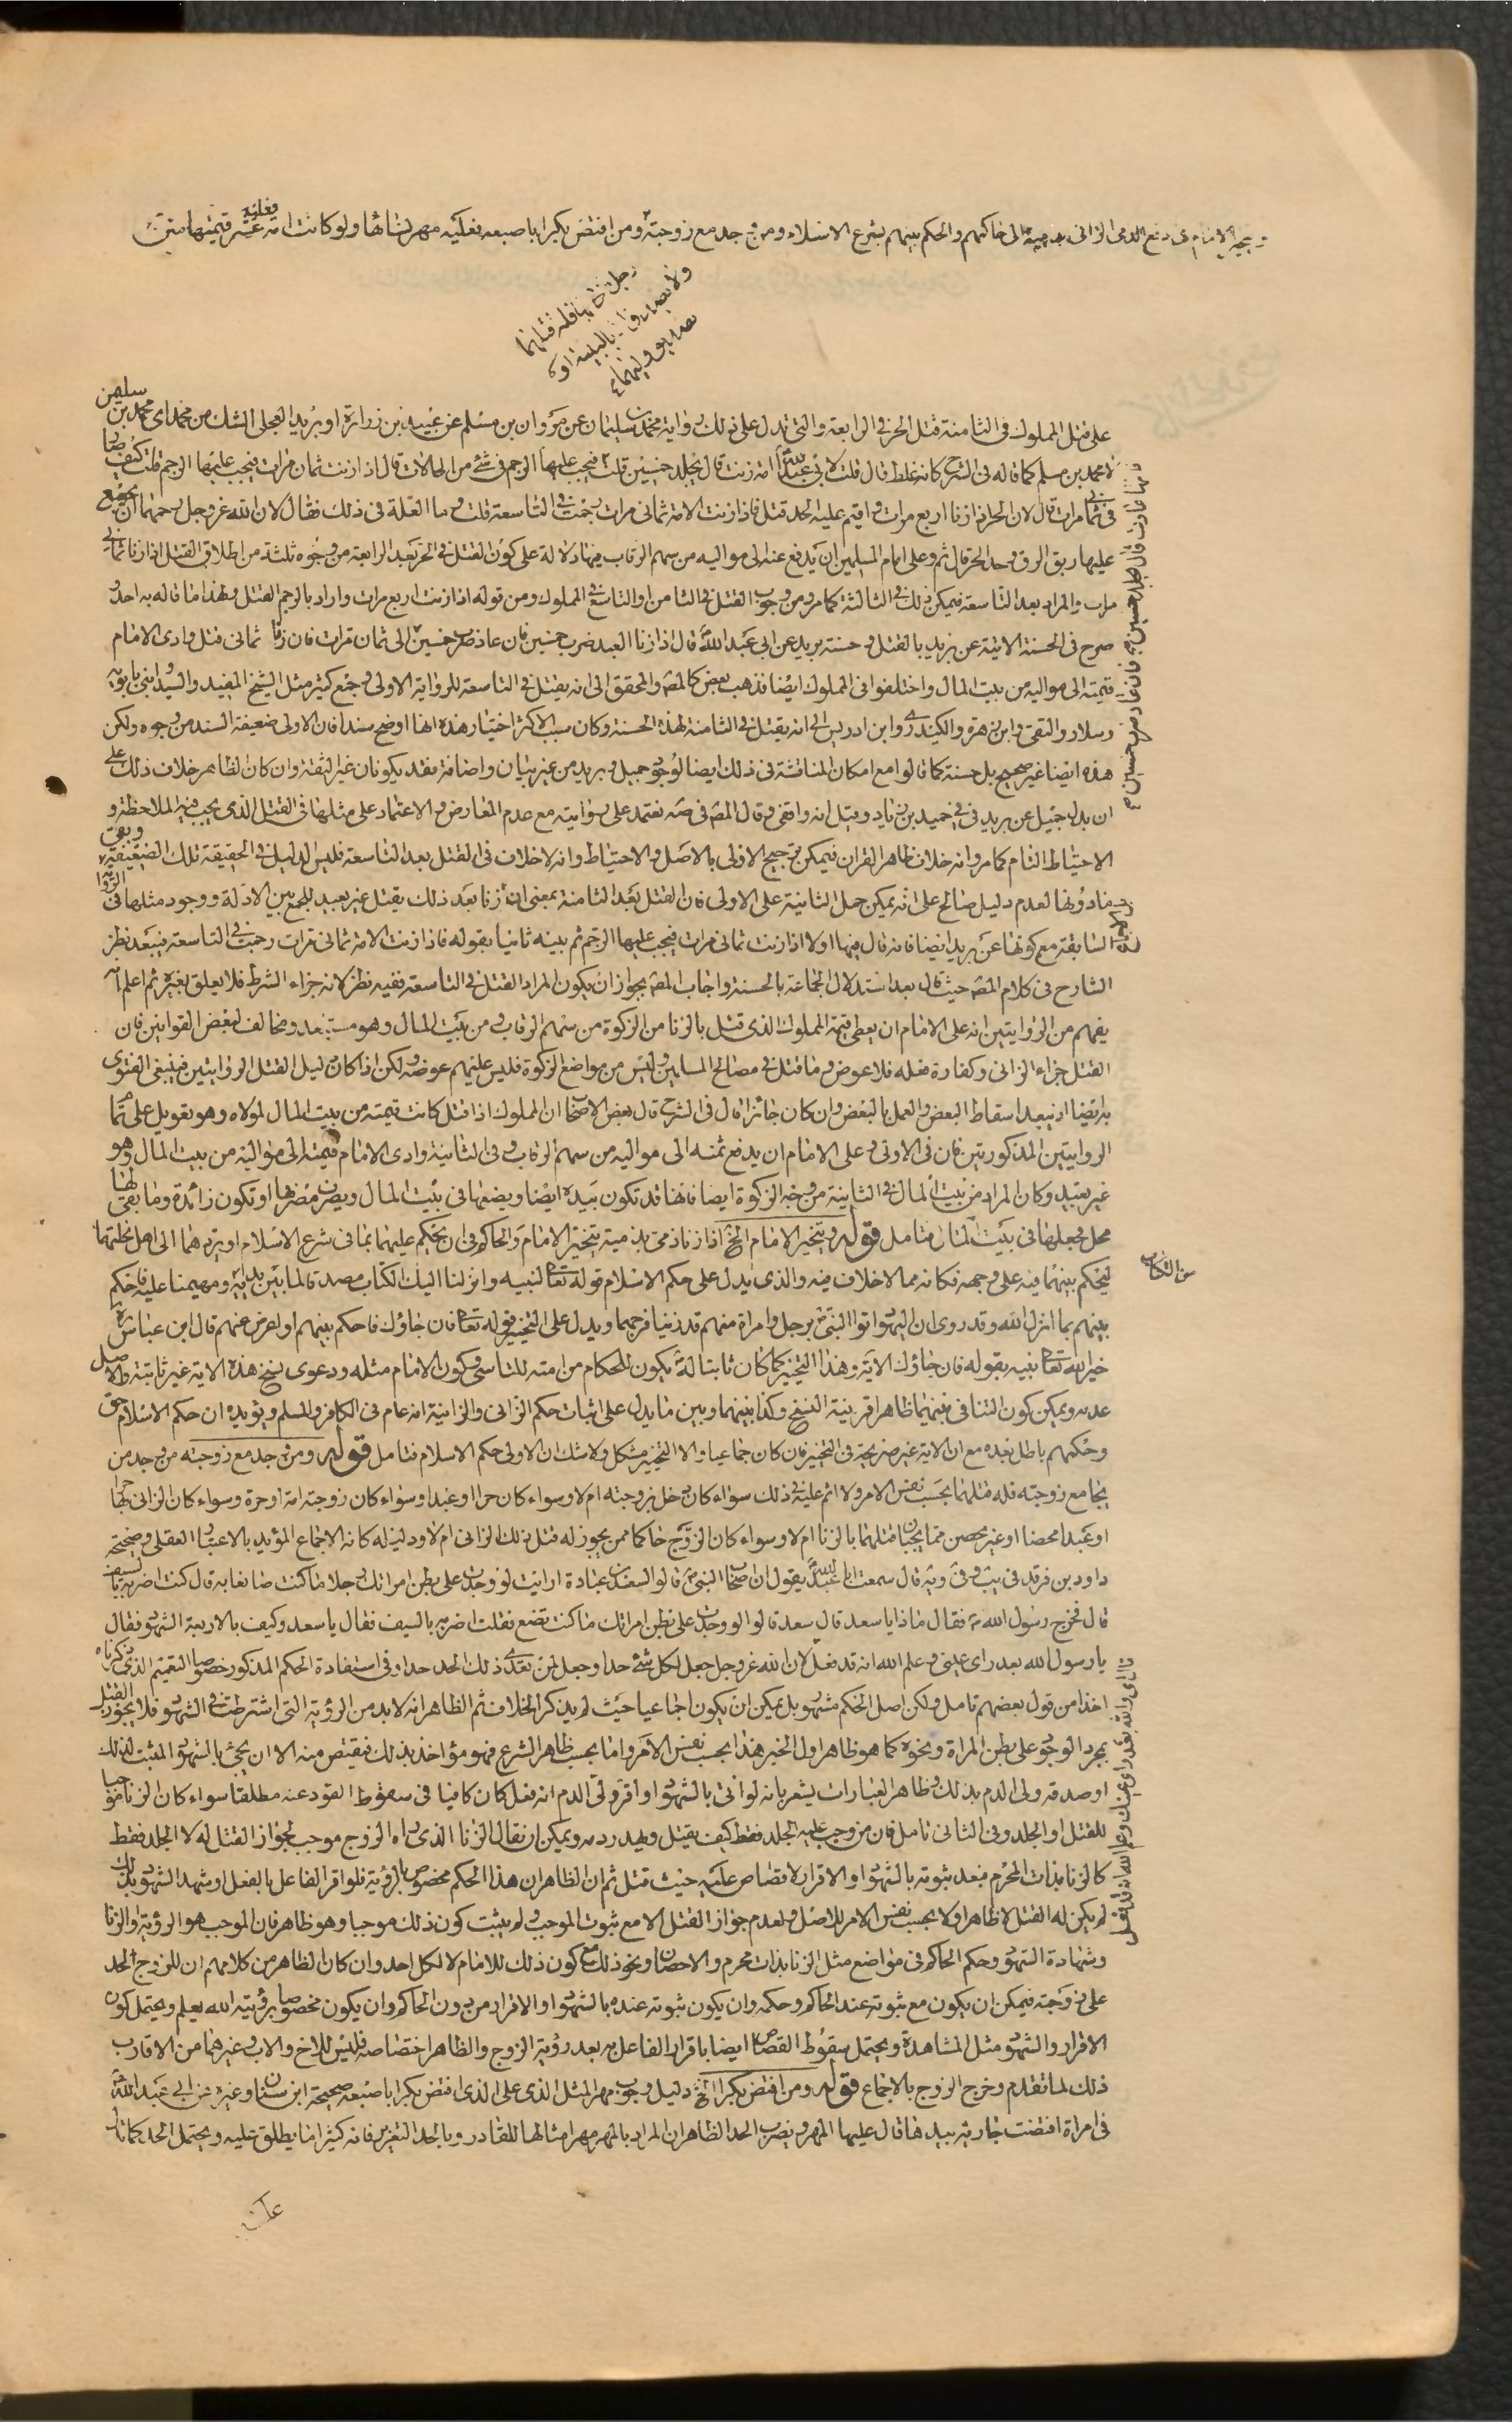 ويتخير الامام في دفع الذمي الزاني بذمية الى حاكمهم والحكم بينهم بشرع الاسلام ومن وجد مع زوجته ومن افتض بكرا باصبعه فعليه مهر نسائها ولو كانت امة فعليه عشر قيمتها
رجلا فله قتلهما
ولا يصدق الا بالبينة او
على قتل المملوك في الثامنة قتل الحر في الرابعة والتي تدل على ذلك رواية محمد بن سليمان عن مروان بن مسلم عن عبيد بن زرارة او بريد العجلي الشك من محمد اى محمد بن سليمن
لا محمد بن مسلم كما قاله في الشرح كانه غلط قال قلت لابي عبد الله امة زنت قال يجلد خمسين قلت فيجب عليها الرجم في شئ من الحالات قال اذا زنت ثمان مرات فيجب عليها الرجم قلت كيف صار
في ثماني مرات قال لان الحر اذا زنا اربع مرات واقيم عليه الحد قتل فاذا زنت الامة ثماني مرات رجمت في التاسعة قلت وما العلة في ذلك فقال لان الله عز وجل رحمها ان يجمع
عليها ربق الرق وحد الحر قال ثم وعلى امام المسلمين ان يدفع ثمنه الى مواليه من سهم الرقاب فيها دلالة على كون القتل في الحر بعد الرابعة من وجوه ثلثة من اطلاق القتل اذا زنا ثماني
مرات والمراد بعد التاسعة فيمكن ذلك في الثالثة كما مر ومن وجوب القتل في الثامن او التاسع في المملوك ومن قوله اذا زنت اربع مرات واراد بالرجم القتل ولهذا ما قاله به احد
صرح في الحسنة الاتية عن بريد بالقتل وحسنة بريد عن ابي عبد الله قال اذا زنا العبد ضرب خمسين فان عاد ضرب خمسين الى ثمان مرات فان زنا ثماني قتل وادى الامام
قيمته الى مواليه من بيت المال واختلفوا في المملوك ايضا فذهب بعض كالمص والمحقق الى انه يقتل في التاسعة للرواية الاولى وجمع كثير مثل الشيخ المفيد والسيد وابني بابويه
وسلار والتقي وابن زهرة والكيدري وابن ادريس الى انه يقتل في الثامنة لهذه الحسنة وكان سبب الاكثر اختيار هذه انها اوضح سندا فان الاولى ضعيفة السند من وجوه ولكن
هذه ايضا غير صحيح بل حسنة كما قالوا مع امكان المناقشة في ذلك ايضا لوجود جميل وبريد من غير بيان واضافة فقد يكونان غير الثقة وان كان الظاهر خلاف ذلك على
الاحتياط التام كما مر وانه خلاف ظاهر القران فيمكن ترجيح الاولى بالاصل والاحتياط وانه لا خلاف في القتل بعد التاسعة فليس الدليل في الحقيقة تلك الضعيفة
فما دونها لعدم دليل صالح على انه يمكن حمل الثانية على الاولى فان القتل بعد الثامنة بمعنى ان زنا بعد ذلك يقتل غير بعيد للجمع بين الادلة ووجود مثلها في الرواية
السابقة مع كونها عن بريد ايضا فانه قال فيها اولا اذا زنت ثماني مرات فيجب عليها الرجم ثم بينه ثانيا بقوله فاذا زنت الامة ثماني مرات رجمت في التاسعة فيبعد نظر
الشارح في كلام المص حيث قال بعد استدلال الجماعة بالحسنة واجاب المص بجواز ان يكون المراد القتل في التاسعة ففيه نظر لانه جزاء الشرط فلا يعلق بغيره ثم اعلم انه
يفهم من الروايتين انه على الامام ان يعطي قيمة المملوك الذي قتل بالزنا من الزكوة من سهم الرقاب ومن بيت المال وهو مستبعد ومخالف لبعض القوانين فان
القتل جزاء الزاني وكفارة فعله فلا عوض وما قتل في مصالح المسلمين وليس من مواضع الزكوة فليس عليهم عوضه لكن اذا كان دليل القتل الروايتين فينبغي الفتوى
به ايضا اذ يبعد اسقاط البعض والعمل بالبعض وان كان جائزا قال في الشرح قال بعض الاصحاب ان المملوك اذا قتل كانت قيمته من بيت المال لمولاه وهو تعويل على تمام
الروايتين المذكورتين فان في الاولى وعلى الامام ان يدفع ثمنه الى مواليه من سهم الرقاب وفي الثانية وادى الامام قيمته الى مواليه من بيت المال وهو
غير بعيد وكان المراد من بيت المال في الثانية من وجه الزكوة ايضا فانها قد تكون بيده ايضا ويضعها في بيت المال ويصرف مصرفها او تكون زائدة وما بقي لها
محل فجعلها في بيت المال فتامل قوله ويتخير الامام الخ اذا زنا ذمي بذمية يتخير الامام والحاكم في ان يحكم عليهما بما في شرع الاسلام او يردهما الى اهل نحلتهما
ليحكم بينهما فيه على وجهه فكانه مما لا خلاف فيه والذي يدل على حكم الاسلام قوله تعالى لنبيه وانزلنا اليك الكتاب مصدقا لما بين يديه ومهيمنا عليه فاحكم
من الكتاب
بينهم بما انزل الله وقد روى ان اليهود اتوا النبي برجل وامراة منهم قد زنيا فرجمها ويدل على التخيير قوله تعالى فان جاؤك فاحكم بينهم او اعرض عنهم قال ابن عباس
خير الله تعالى نبيه بقوله فان جاؤك الاية وهذا التخيير كما كان ثابتا له يكون للحكام من امته للتاسي وكون الامام مثله ودعوى نسخ هذه الاية غير ثابتة والاصل
عدمه ويمكن كون التنافي بينهما ظاهرا قرينة النسخ وكذا بينهما وبين ما يدل على اثبات حكم الزاني والزانية انه عام في الكافر والمسلم ويؤيده ان حكم الاسلام حق
وحكمهم باطل بعده مع ان الاية غير صريحة في التخيير فان كان اجماعيا والا التخيير مشكل ولا شك ان الاولى حكم الاسلام فتامل قوله ومن وجد مع زوجته من وجد من
يجامع زوجته فله قتلهما بحسب نفس الامر ولا اثم عليه في ذلك سواء كان دخل بزوجته ام لا وسواء كان حرا او عبدا وسواء كان زوجته امة او حرة وسواء كان الزاني بها حرا
او عبدا محصنا او غير محصن مما يجب قتلهما بالزنا ام لا وسواء كان الزوج حاكما ممن يجوز له قتل ذلك الزاني ام لا ودليله كانه الاجماع المؤيد بالاعتبار العقلي وصحيحة
داود بن فرقد في يب وفي وفيه قال سمعت ابا عبد الله يقول ان اصحاب النبي قالوا لسعد بن عبادة ارايت لو وجدت على بطن امراتك رجلا ما كنت صانعا به قال كنت اضربه بالسيف
قال فخرج رسول الله فقال ماذا يا سعد قال سعد قالوا لو وجدت على بطن امراتك ما كنت تصنع فقلت اضربه بالسيف فقال يا سعد وكيف بالاربعة الشهود فقال
يا رسول الله بعد راى عيني وعلم الله انه قد فعل لان الله عز وجل جعل لكل شئ حدا وجعل لمن تعدى ذلك الحد حدا وفي استفادة الحكم المذكور خصوصا التعميم الذي ذكرناه
اخذا من قول بعضهم تامل ولكن اصل الحكم مشهور بل يمكن ان يكون اجماعيا حيث لم يذكر الخلاف ثم الظاهر انه لابد من الرؤية التي اشترطت في الشهود فلا يجوز القتل
بمجرد الوجود على بطن المراة ونحوه كما هو ظاهر اول الخبر هذا بحسب نفس الامر واما بحسب ظاهر الشرع فهو مؤاخذ بذلك فيقتص منه الا ان يجئ بالشهود المثبت لذلك
او صدقه ولي الدم بذلك وظاهر العبارات يشعر بانه لو اتى بالشهود او اقر ولي الدم انه فعل كان كافيا في سقوط القود عنه مطلقا سواء كان الزنا موجبا
للقتل او الجلد وفي الثاني تامل فان من وجب عليه الجلد فقط كيف يقتل ويهدر دمه ويمكن ان يقال الزنا الذي راه الزوج موجب لجواز القتل له لا الجلد فقط
كالزنا بذات المحرم فبعد ثبوته بالشهود او الاقرار لا قصاص عليه حيث قتل ثم ان الظاهر ان هذا الحكم مخصوص بالرؤية فلو اقر الفاعل بالفعل او شهد الشهود بذلك
لم يكن له القتل لا ظاهرا ولا بحسب نفس الامر للاصل ولعدم جواز القتل الا مع ثبوت الموجب ولم يثبت كون ذلك موجبا وهو ظاهر فان الموجب هو الرؤية والزنا
وشهادة الشهود وحكم الحاكم في مواضع مثل الزنا بذات محرم والاحصان ونحو ذلك مع كون ذلك للامام لا لكل احد وان كان الظاهر من كلامهم ان للزوج الحد
على زوجته فيمكن ان يكون مع ثبوته عند الحاكم وحكمه وان يكون ثبوته عنده بالشهود او الاقرار من دون الحاكم وان يكون مخصوصا برؤيته الله يعلم ويحتمل كون
الاقرار والشهود مثل المشاهدة ويحتمل سقوط القصاص ايضا باقرار الفاعل به بعد رؤية الزوج والظاهر اختصاصه فليس للاخ والاب وغيرهما من الاقارب
ذلك لما تقدم وخرج الزوج بالاجماع قوله ومن افتض بكرا الخ دليل وجوب مهر المثل الذي على الذي افتض بكرا باصبعه صحيحة ابن سنان وغيره عن ابي عبد الله
في امراة افتضت جارية بيدها قال عليها المهر ويضرب الحد الظاهر ان المراد بالمهر مهر امثالها للتبادر وبالحد التعزير فانه كثيرا ما يطلق عليه ويحتمل الحد